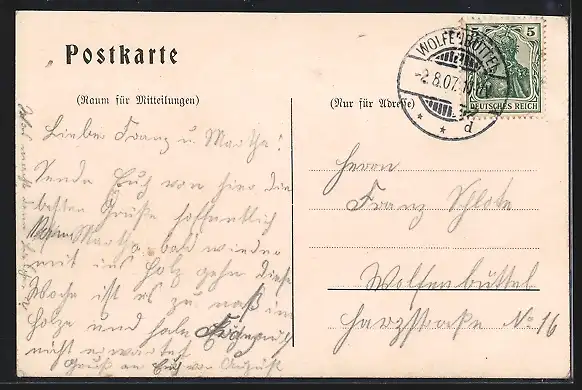 Postkarte
(Raum für Mitteilungen)
(Nur für Adresse)
WOLFENBÜTTEL
-2.8.07.
* * d
5
DEUTSCHES REICH
Lieber Franz u. Martha!
Sende Euch von hier die
besten Grüße hoffentlich
Martha bald wieder
mit ins Holz gehn diese
Woche ist es zu naß im
Holze und
nicht erwartet
Gruß an Euch von August
Herrn
Franz Schlote
Wolfenbüttel
Harzstraße No 16